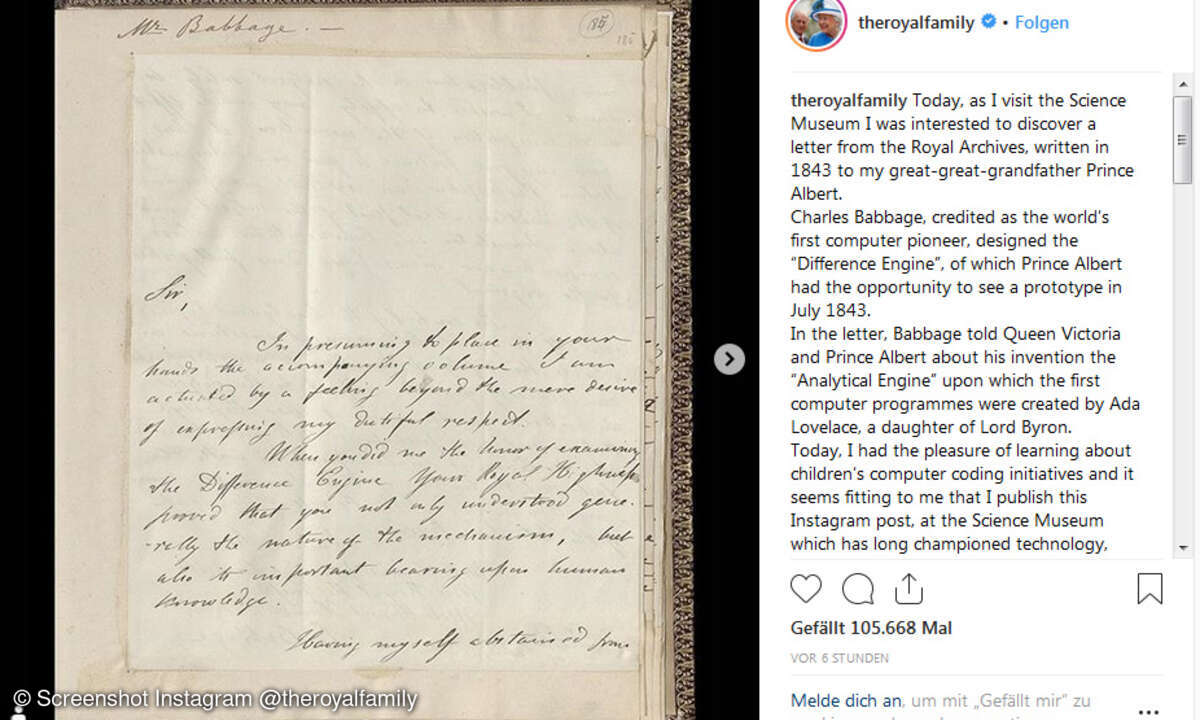 Mr. Babbage. —
Sir,
In presuming to place in your
hands the accompanying volume I am
actuated by a feeling beyond the mere desire
of expressing my dutiful respect.
When you did me the honor of examining
the Difference Engine Your Royal Highness
proved that you not only understood gene-
-rally the nature of the mechanism, but
also its important bearing upon human
knowledge.
Having myself abstained from
© Screenshot Instagram @theroyalfamily
theroyalfamily • Folgen
theroyalfamily Today, as I visit the Science
Museum I was interested to discover a
letter from the Royal Archives, written in
1843 to my great-great-grandfather Prince
Albert.
Charles Babbage, credited as the world's
first computer pioneer, designed the
“Difference Engine”, of which Prince Albert
had the opportunity to see a prototype in
July 1843.
In the letter, Babbage told Queen Victoria
and Prince Albert about his invention the
“Analytical Engine” upon which the first
computer programmes were created by Ada
Lovelace, a daughter of Lord Byron.
Today, I had the pleasure of learning about
children's computer coding initiatives and it
seems fitting to me that I publish this
Instagram post, at the Science Museum
which has long championed technology,
Gefällt 105.668 Mal
VOR 6 STUNDEN
Melde dich an, um mit „Gefällt mir“ zu